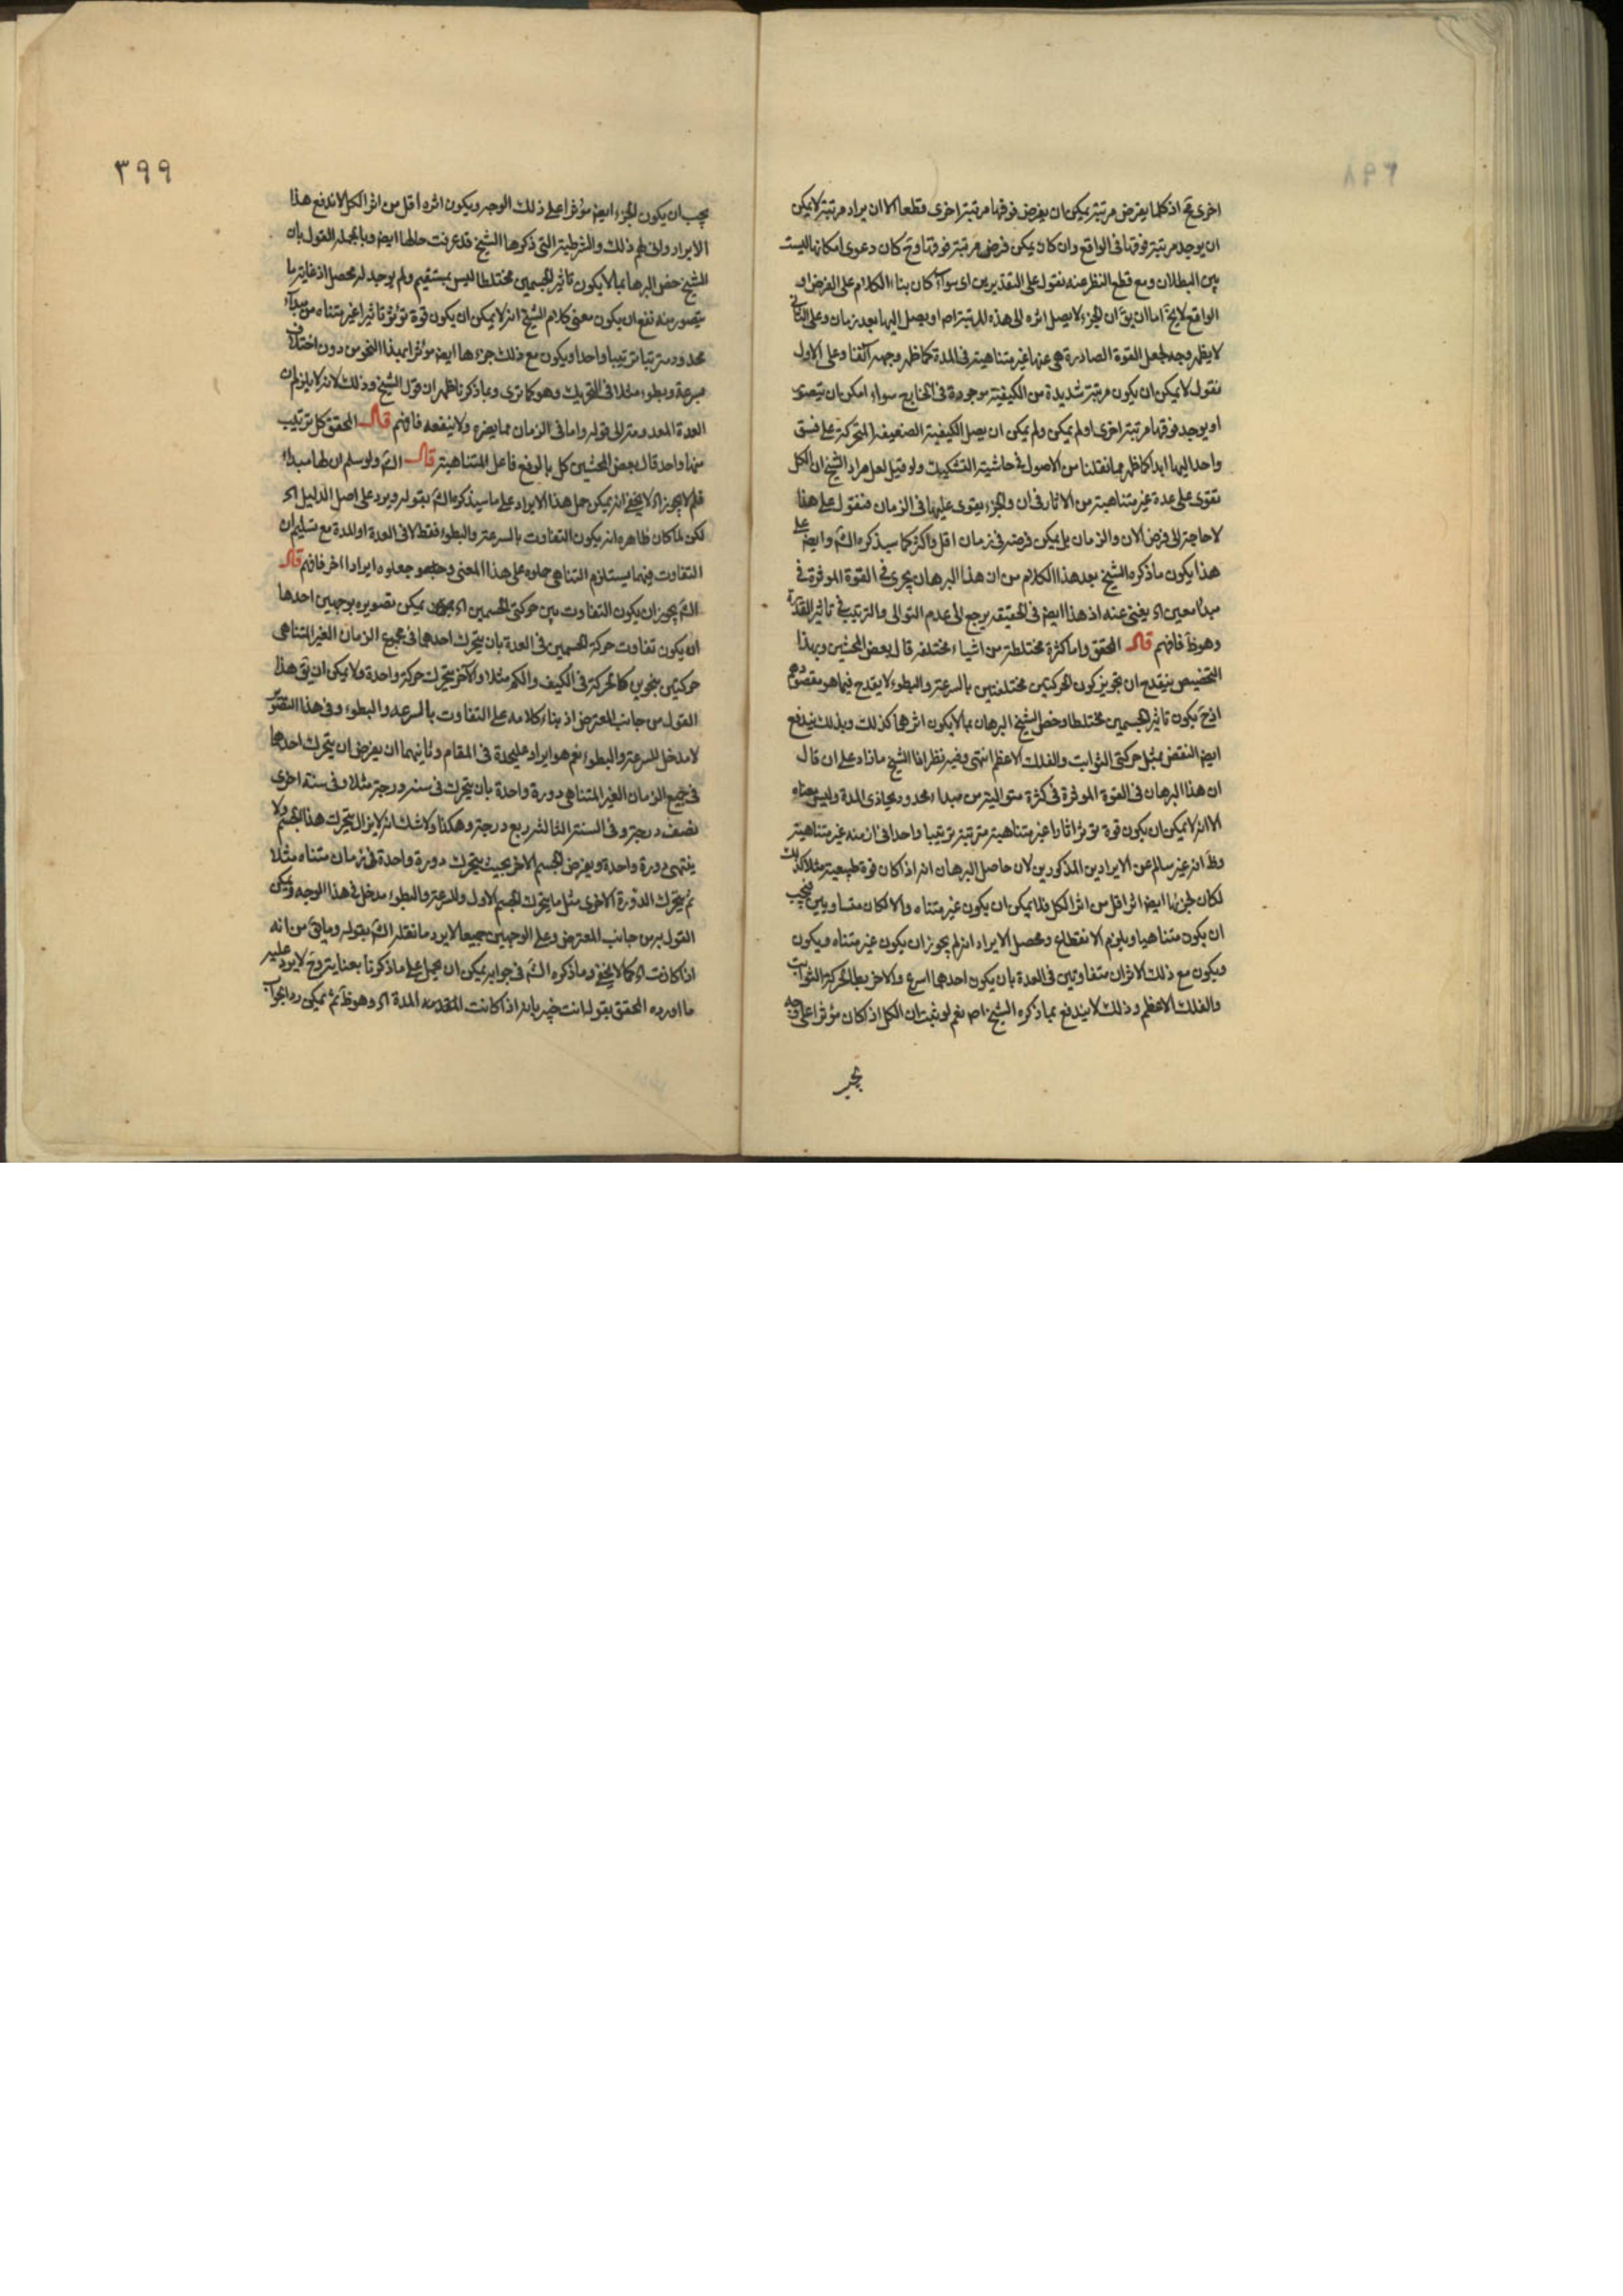 ٣٩٨
اخرى فح اذ كلما يفرض مرتبة يمكن ان يفرض فوقها مرتبة اخرى وقطعا الا ان يراد مرتبة لا يمكن
ان يوجد مرتبة فوقها فى الواقع وان كان يمكن فرض مرتبة فوقها وح كان دعوى امكانها ليست
بين البطلان ومع قطع النظر عنه نقول على التقديرين اى سواء كان بناء الكلام على الفرض او
الواقع لا يخ اما ان يق ان الجزء لا يصل اثره الى هذه المرتبة اص او يصل اليها بعد زمان وعلى الثانى
لا يظهر وجه لجعل القوة الصادرة هى عنها غير متناهية فى المدة كما ظهر وجهه آنفا وعلى الاول
نقول لا يمكن ان يكون مرتبة شديدة من الكيفية موجودة فى الخارج سواء امكن ان يتصور
او يوجد فوقها مرتبة اخرى او لم يمكن ولم يمكن ان يصل الكيفية الضعيفة المتحركة على نسق
واحد اليها ابدا كما ظهر مما نقلنا من الاصول فى حاشية التشكيك ولو قيل لعل مراد الشيخ ان الكل
تقوى على عدة غير متناهية من الاثار فى ان والجزء يقوى عليها فى الزمان فنقول على هذا
لا حاجة الى فرض الان والزمان بل يمكن فرضه فى زمان اقل واكثر كما سيذكره الش وايض على
هذا يكون ما ذكره الشيخ بعد هذا الكلام من ان هذا البرهان يجرى فى القوة الموثرة فى
مبدأ معين اه يغنى عنه اذ هذا ايض فى الحقيقة يرجع الى عدم التوالى والترتيب فى تاثير القدرة
وهو ظ فافهم قال المحقق واما كثرة مختلطة من اشياء مختلفة قال بعض المحشين وبهذا
التخصيص ينقدح ان تجويز كون الحركتين مختلفتين بالسرعة والبطوء لا يقدح فيما هو مقصودهم
اذ ح يكون تاثير الجسمين مختلطا وخص الشيخ البرهان بما لا يكون اثرهما كذلك وبذلك يندفع
ايض النقض بمثل حركتى الثوابت والفلك الاعظم انتهى وفيه نظر اذا الشيخ ما زاد على ان قال
ان هذا البرهان فى القوة الموثرة فى كثرة متوالية من مبداء محدود يحاذى المدة وليس معناه
الا انه لا يمكن ان يكون قوة توثر اثارا غير متناهية مترتبة ترتيبا واحدا فى ازمنة غير متناهية
وظ انه غير سالم عن الايرادين المذكورين لان حاصل البرهان انه اذا كان قوة طبيعية مثلا كذلك
لكان لجزئها ايض اثر اقل من اثر الكل فلا يمكن ان يكون غير متناه والا لكان متساويين فيجب
ان يكون متناهيا ويلزم الانقطاع ومحصل الايراد انه لم يجوز ان يكون غير متناه ويكون
ويكون مع ذلك الاثران متفاوتين فى العدة بان يكون احدهما اسرع والاخر بطأ كحركة الثوابت
والفلك الاعظم وذلك لا يندفع بما ذكره الشيخ اص نعم لو ثبت ان الكل اذ كان مؤثرا على وجه
يجب
٣٩٩
يجب ان يكون الجزء ايض مؤثرا على ذلك الوجه ويكون اثره اقل من اثر الكل لاندفع هذا
الايراد وانى لهم ذلك والشرطية التى ذكرها الشيخ قد عرفت حالها ايض وبالجملة القول بان
الشيخ خص البرهان بما لا يكون تاثير الجسمين مختلطا ليس بمستقيم ولم يوجد له محصل اذ غاية ما
يتصور منه نفع ان يكون معنى كلام الشيخ انه لا يمكن ان يكون قوة تؤثر تاثيرا غير متناه من مبدأ
محدود مترتبا ترتيبا واحدا ويكون مع ذلك جزءها ايض مؤثرا بهذا النحو من دون اختلاف
سرعة وبطوء مثلا فى التحريك وهو كما ترى وبما ذكرنا ظهر ان قول الشيخ وذلك لانه لا يلزم ان
العدة المعدومة الى قوله واما فى الزمان مما يضره ولا ينفعه فافهم قال المحقق كل ترتيب
منها واحد قال بعض المحشين كل بالرفع فاعل المتناهية قال الش ولو سلم ان لها مبداء
فلم لا يجوز اه لا يخفى انه يمكن حمل هذا الايراد على ما سيذكره الش بقوله ويرد على اصل الدليل اه
لكن لما كان ظاهره انه يكون التفاوت بالسرعة والبطوء فقط لا فى العدة او المدة مع تسليم ان
التفاوت فيهما يستلزم التناهى حملوه على هذا المعنى وجعلوه ايرادا اخر فافهم قال
الش يجوز ان يكون التفاوت بين حركتى الجسمين اه يمكن تصويره بوجهين احدها
ان يكون تفاوت حركة الجسمين فى العدة بان يتحرك احدهما فى مجموع الزمان الغير المتناهى
حركتين بنحوين كالحركة فى الكيف والكم مثلا والآخر يتحرك حركة واحدة ولا يمكن ان يق هذا
القول من جانب المعترض اذ بناء كلامه على التفاوت بالسرعة والبطوء وفى هذا التصوير
لا مدخل للسرعة والبطوء نعم هو ايراد عليحدة فى المقام وثانيهما ان يفرض ان يتحرك احدهما
فى جميع الزمان الغير المتناهى دورة واحدة بان يتحرك فى سنة درجة مثلا وفى سنة اخرى
نصف درجة وفى السنة الثالثة ربع درجة وهكذا ولا شك انه لا يزال يتحرك هذا الجسم ولا
ينتهى دورة واحدة ويفرض الجسم الاخر بحيث يتحرك دورة واحدة فى زمان متناه مثلا
ثم يتحرك الدورة الاخرى مثل ما يتحرك الجسم الاول وللسرعة والبطوء مدخل فى هذا الوجه ويمكن
القول به من جانب المعترض وعلى الوجهين جميعا لا يرد ما نقله الش بقوله وما يق من انه
اذا كانت اه كما لا يخفى وما ذكره الش فى جوابه يمكن ان يحمل على ما ذكرنا بعناية وح لا يرد عليه
ما اورده المحقق بقوله انت خبير بانه اذا كانت المقدمة المدة اه وهو ظ ثم يمكن رد الجواب